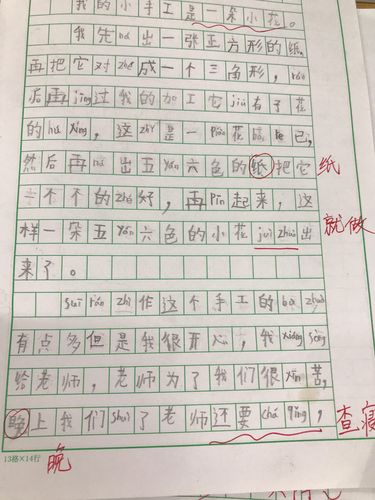 我的小手工是一朵小花。
我先ná出一张正方形的纸,
再把它对zhé成一个三角形,rán
后再jīng过我的加工它jiù有了花
的huā xíng,这zhǐ是一piàn花bàn ér已,
然后再ná出五yán六色的纸把它 纸
一个个的zhé好,再pīn起来,这
样一朵五yán六色的小花jiù zhuò出 就做
来了。
suī rán zhì作这个手工的bù zhòu
有点多但是我很开心,我xiǎng sòng
给老师,老师为了我们很xīn苦,
晚上我们shuì了老师还要chá qǐng, 查寝
晚
13格×14行